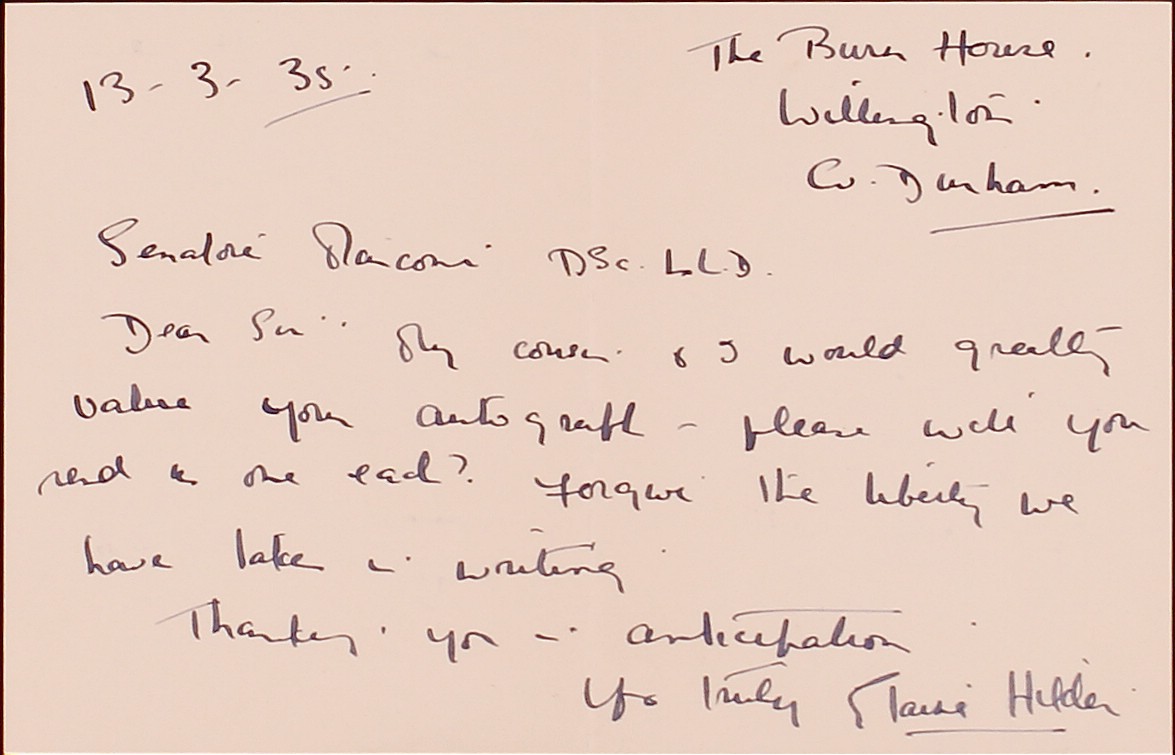 13-3-35.
The Burn House.
Willington
Co. Durham.
Senatore Marconi DSc. LL.D.
Dear Sir.. My cousin & I would greatly
value your autograph - please will you
send us one each? Forgive the liberty we
have taken in writing
Thanking you in anticipation
Yrs truly Hilder